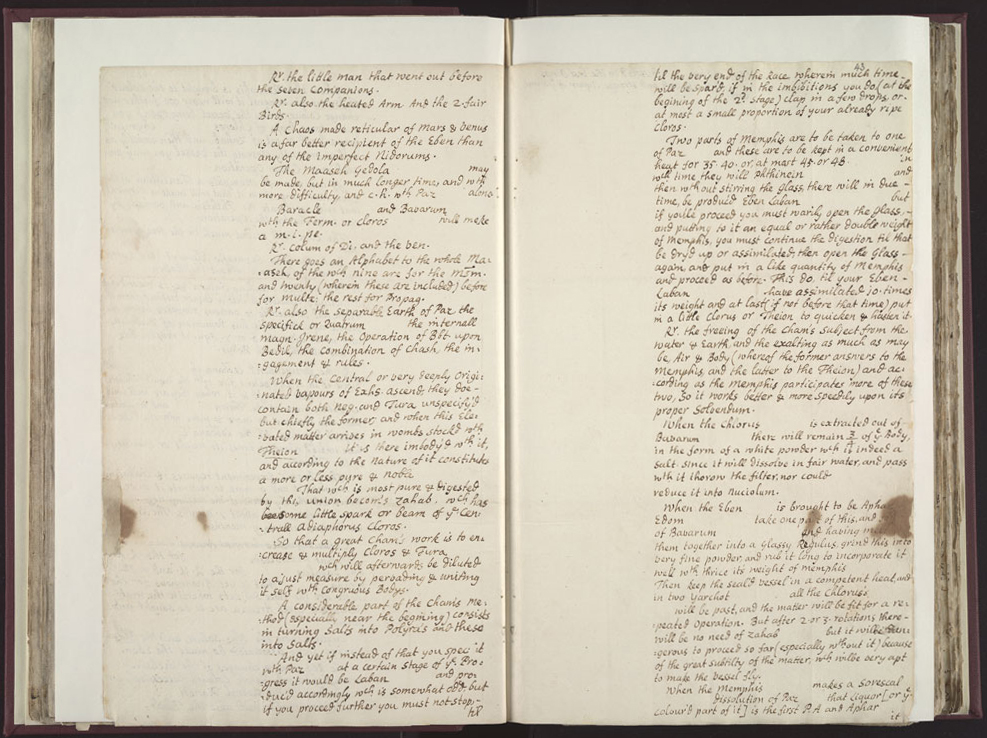 Rx. the little man that went out before
the seven Companions.
Rx. also the heated Arm And the 2. fair
Birds.
A Chaos made reticular of Mars & Venus
is a far better recipient of the Eben than
any of the Imperfect Nidorums.
The Maaseh Gedola may
be made, but in much longer time, and wth
more difficulty, and c.R. wth Paz alone.
Baracle and Bavarum
wth the Ferm. or Cloros will make
a m.l.pe.
Rx. Colum of Di. and the ben.
There goes an Alphabet to the whole Ma-
-aseh, of the wch nine are for the Mm.
and twenty (wherein these are included) before
for multe: the rest for Propag.
Rx. also the separable Earth of Paz the
specifick or Quatrum the internall
magn. Irene, the Operation of Bbt. upon
Bedil, the Combination of Chash, the in-
-gagement & rules.
When the Central or very deeply Origi-
nated vapours of Exhs. ascend, they doe
contain both Neg. and Tura unspecify'd
but chiefly the former, and when this Ele-
-vated matter arrives in wombs stock'd wth
Theion it is there imbody'd wth it,
and according to the Nature of it constitutes
a more or less pure & noble
That wch is most pure & digested
by this union becom's Zahab, wch has
some little spark or beam of ye Cen-
-trall Adiaphorus Cloros.
So that a great Cham's work is to en-
-crease & multiply Cloros & Tura
wch will afterwards be diluted
to a just measure by pervading & uniting
it self wth congruous Bodys.
A considerable part of the Cham's me-
-thod (especially near the begining) consists
in turning Salis into Polyra's and these
into Salis.
And yet if instead of that you spec: it
wth Paz at a certain stage of ye Pro-
-gress it would be Laban and pro-
-duc'd accordingly wch is somewhat odd, but
if you proceed further you must not stop,
till
43
til the very end of the Race wherein much time
will be spard, if in the imbibitions you do (at the
begining of the 2d. stage) clap in a few drops, or
at most a small proportion of your already ripe
Cloros.
Two parts of Memphis are to be taken to one
of Paz and these are to be kept in a convenient
heat for 35. 40. or at most 45. or 48. in
wch time they will phthinein and
then wthout stirring the Glass there will in due
time, be produc'd Eben Laban but
if you'le proceed you must warily open the Glass,
and putting to it an equal or rather double weight
of Memphis, you must continue the digestion til that
be dry'd up or assimilated, then open the Glass
again, and put in a like quantity of Memphis
and proceed as before. This do, til your Eben
Laban have assimilated 10. times
its weight and at last (if not before that time) put
in a little Clorus or Theion to quicken & higher it.
Rx. the freeing of the Cham's Subject from the
water & Earth, and the exalting as much as may
be, Air & Body (whereof the former answers to the
Memphis, and the latter to the Theion) and ac-
-cording as the Memphis participates more of these
two, So it works better & more speedily upon its
proper Solvendum.
When the Chlorus is extracted out of
Bavarum there will remain 3/4 of ye body,
in the form of a white powder wch is indeed a
salt, since it will dissolve in fair water, and pass
wth it thorow the filter, nor could
reduce it into Nuciolum.
When the Eben is brought to be Apha
Edom take one part of this, and
of Bavarum and having
them together into a Glassy Regulus, grind this into
very fine powder, and rub it long to incorporate it
well wth thrice its weight of Memphis
Then keep the seal'd vessel in a competent heat, and
in two Yarchot all the Chloruss
will be past, and the matter will be fit for a re-
peated Operation. But after 2. or 3. rotations there
will be no need of Zahab but it will be dan-
gerous to proceed so far (especially wthout it) because
of the great subtilty of the matter, wch will be very apt
to make the vessel fly.
When the Memphis makes a Sorescal
dissolution of Paz that Liquor [or ye
colour'd part of it] is the first P.A. and Aphar
it